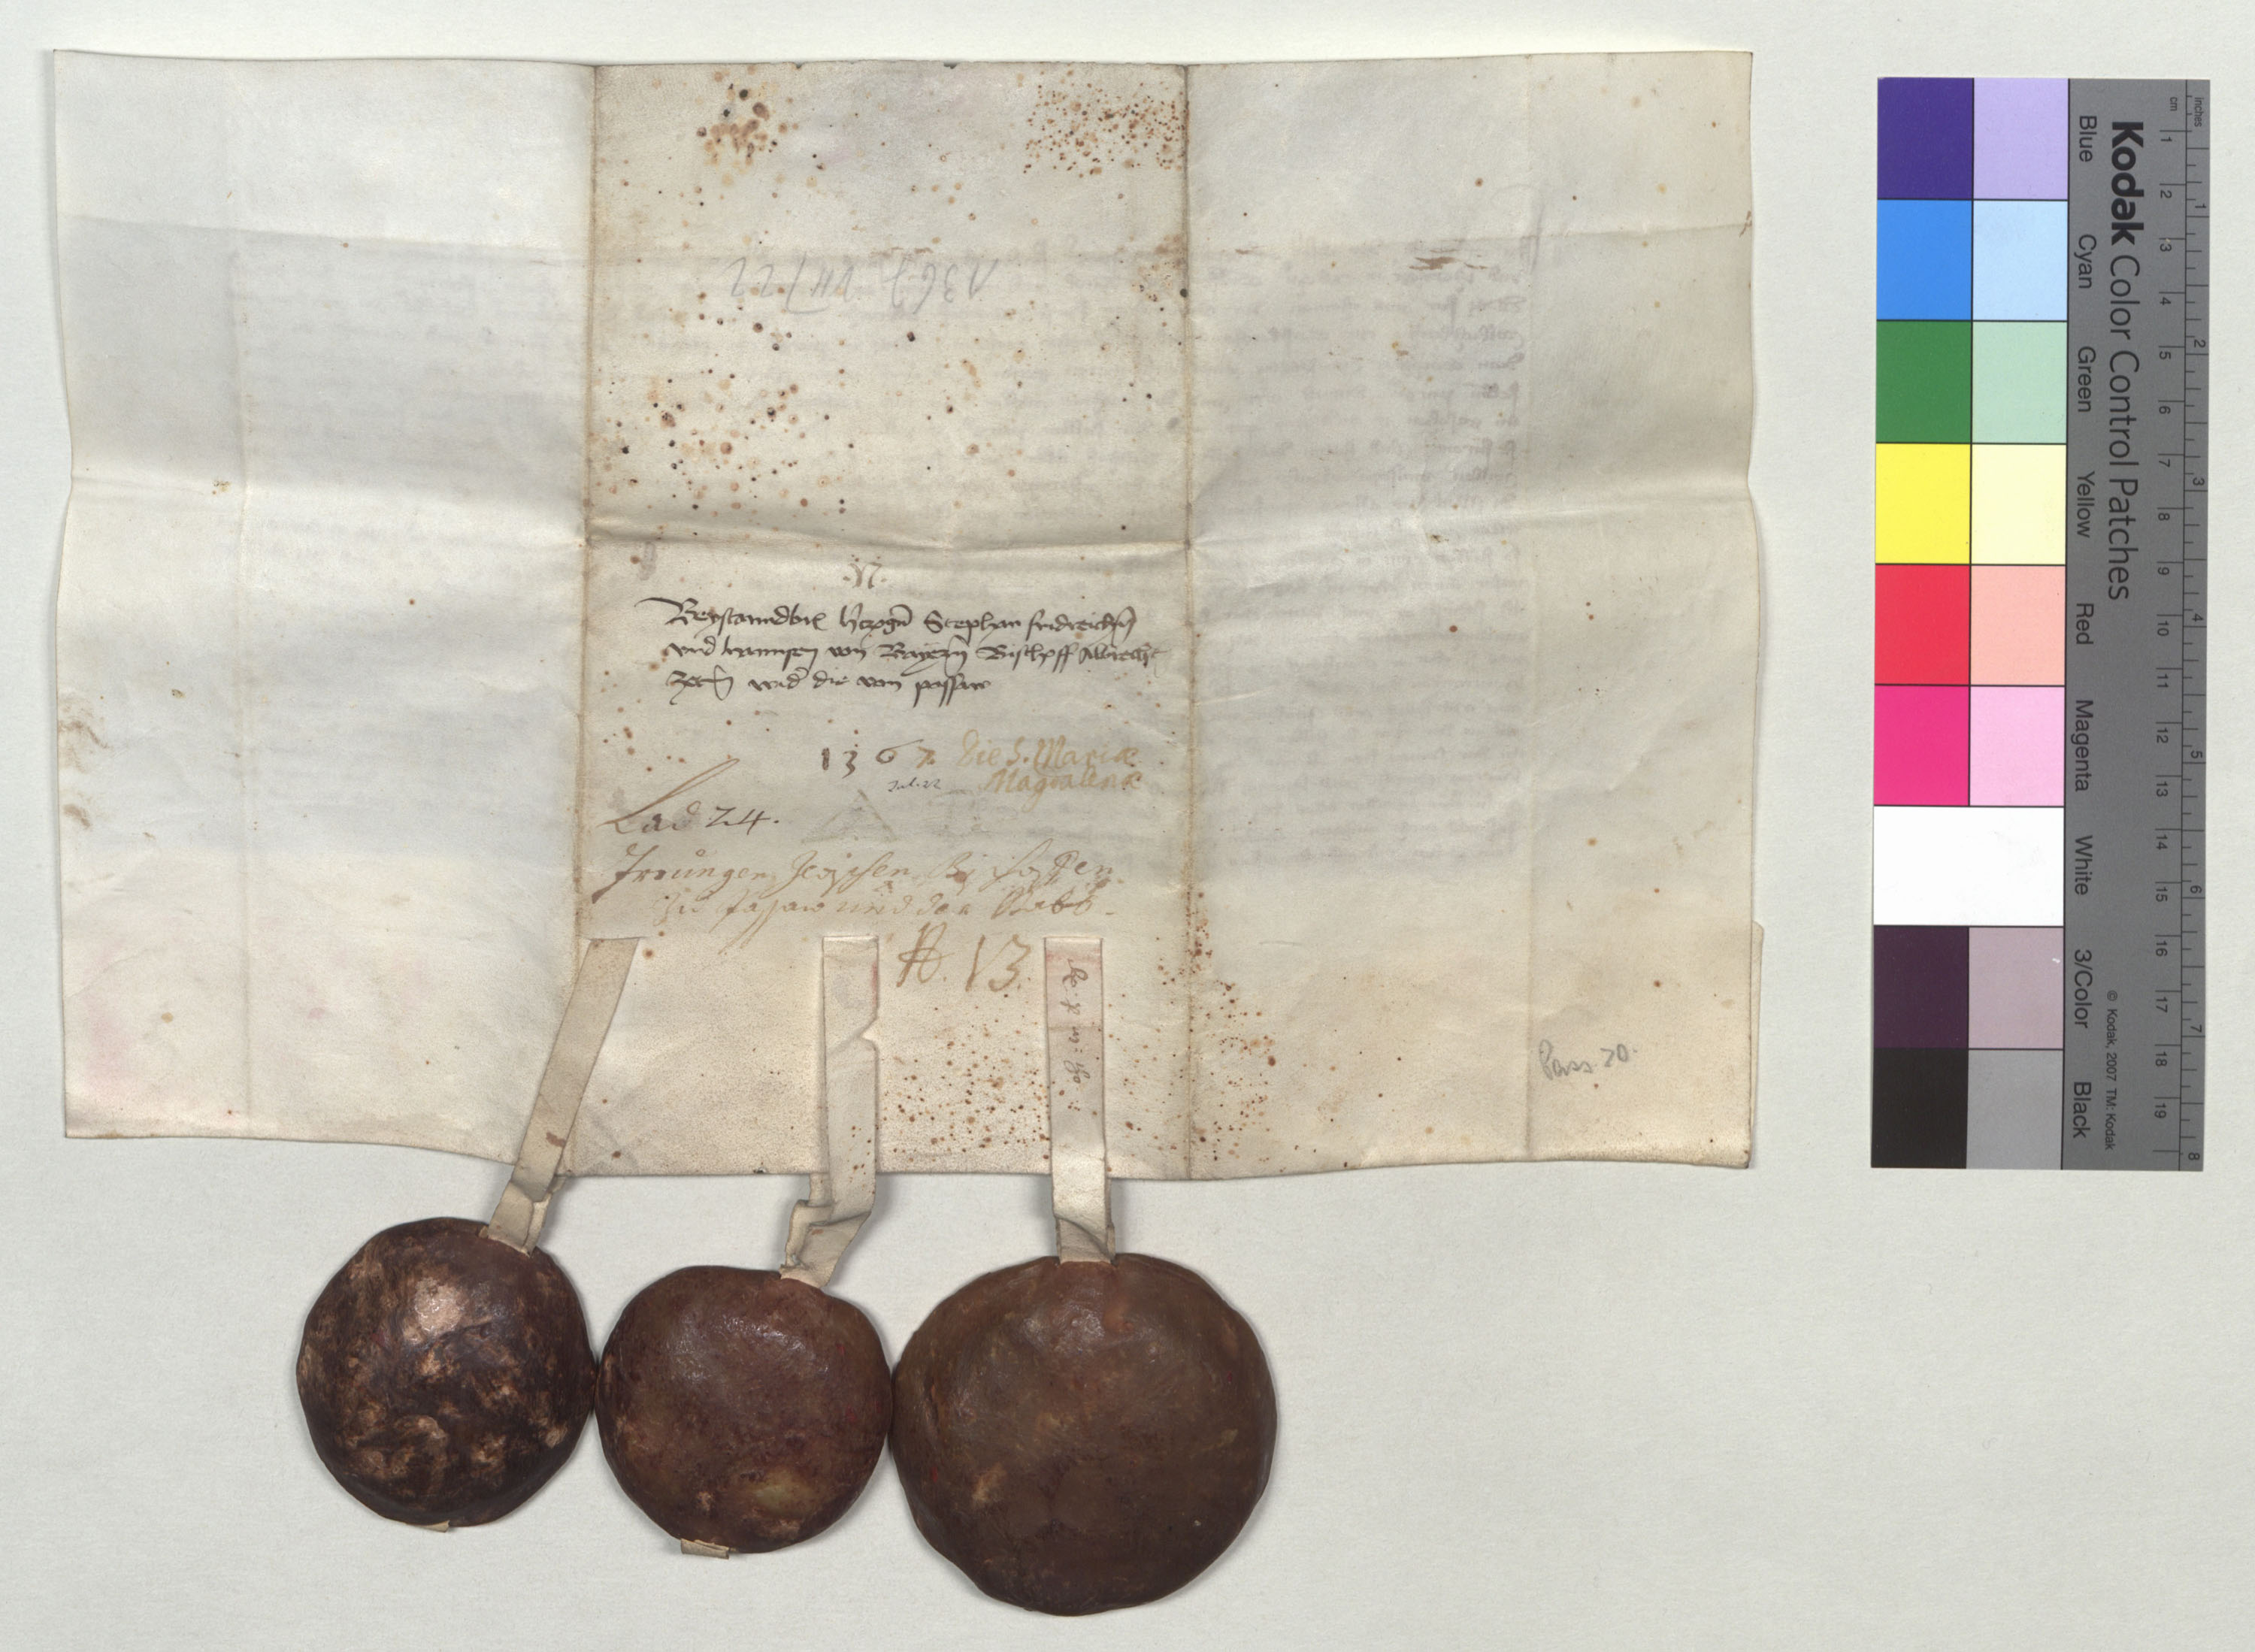 1367 VII 22
.N.
Beystanndbrief hertzogn Stephan fridreichsn
vnd hannsen von Bayern Bischoff Albrecht
wider die von passaw
1367. Die S. Mariæ
Juli 22 Magdalenæ
Lad 24.
Irrungen zwischen Bischoffen
zu Passaw und der Stadt.
N. 13.
Pass. 20.
Kodak Color Control Patches
Blue Cyan Green Yellow Red Magenta White 3/Color Black
© Kodak, 2007 TM: Kodak
cm 1 2 3 4 5 6 7 8 9 10 11 12 13 14 15 16 17 18 19
inches 1 2 3 4 5 6 7 8